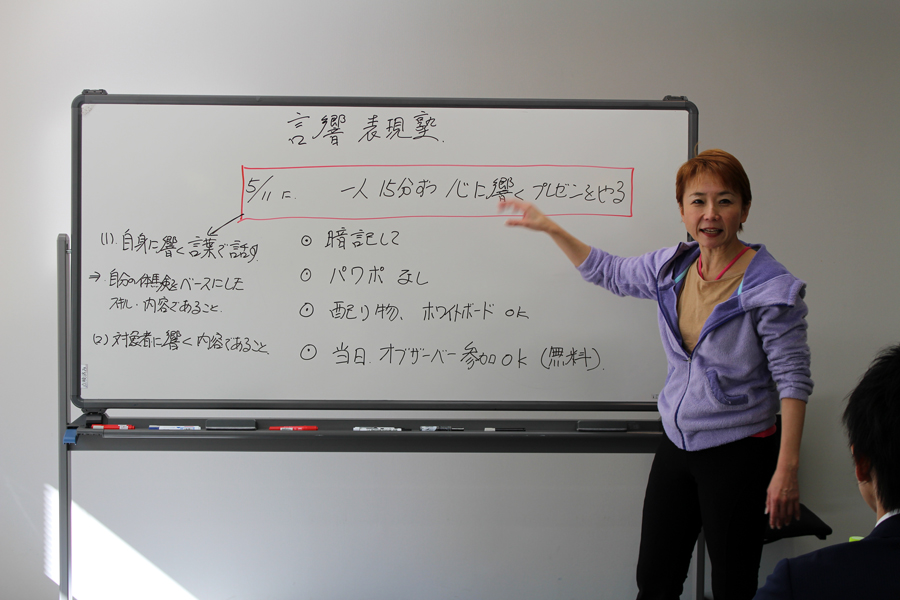 言響 表現塾.
5/11に. 一人15分ずつ 心に響くプレゼンをやる
(1). 自身に響く言葉で話す.
⇒ 自分の体験をベースにした
スキル・内容であること.
(2) 対象者に響く内容であること
⊙ 暗記して
⊙ パワポ なし
⊙ 配り物、ホワイトボード OK
⊙ 当日. オブザーバー参加OK (無料).